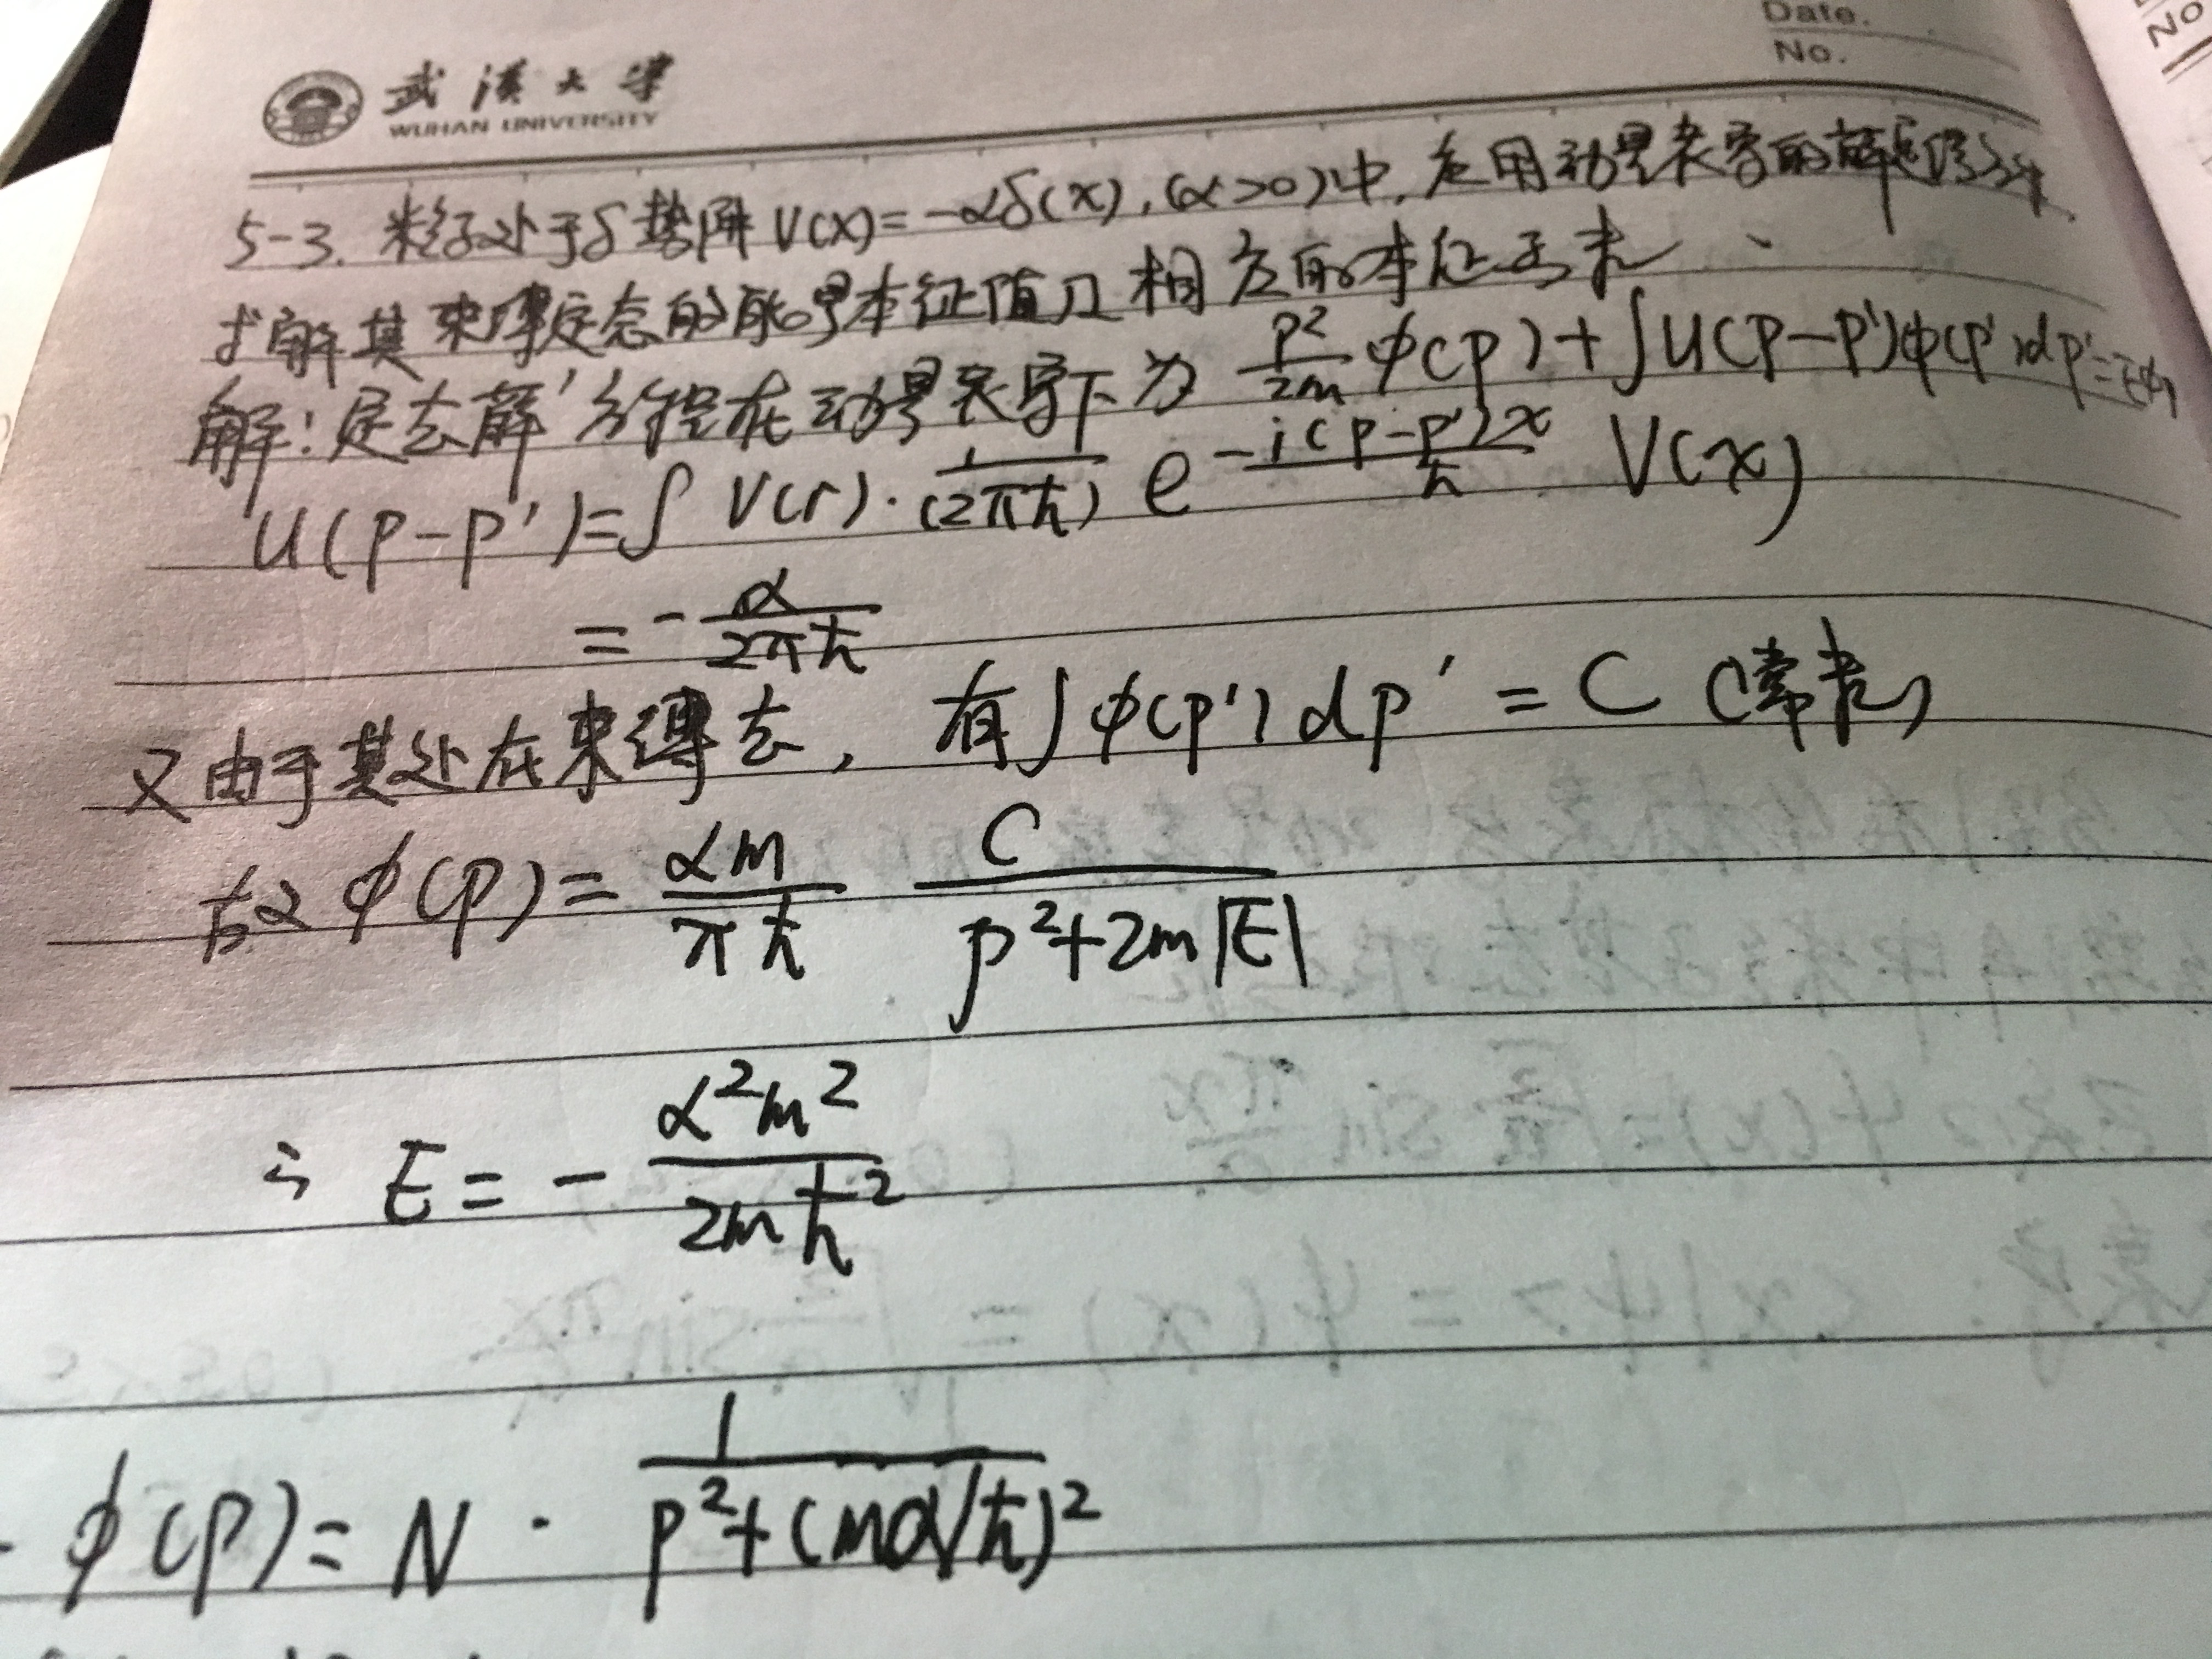 Date.
No.
No
武汉大学
WUHAN UNIVERSITY
5-3. 粒子处于δ势阱 V(x)=-αδ(x), (α>0)中, 应用动量表象的薛定谔方程
求解其束缚定态的能量本征值及相应的本征函数
解: 定态薛方程在动量表象下为 p²/2m φ(p)+∫U(p-p')φ(p')dp'=Eφ
U(p-p')=∫V(r)·1/(2πħ) e^{-i(p-p')x/ħ} V(x)
=-α/2πħ
又由于其处在束缚态, 有∫φ(p')dp'=C (常数)
故φ(p)=αm/πħ C/p²+2m|E|
∴ E=-α²m²/2mħ²
φ(p)=N·1/p²+(mα/ħ)²